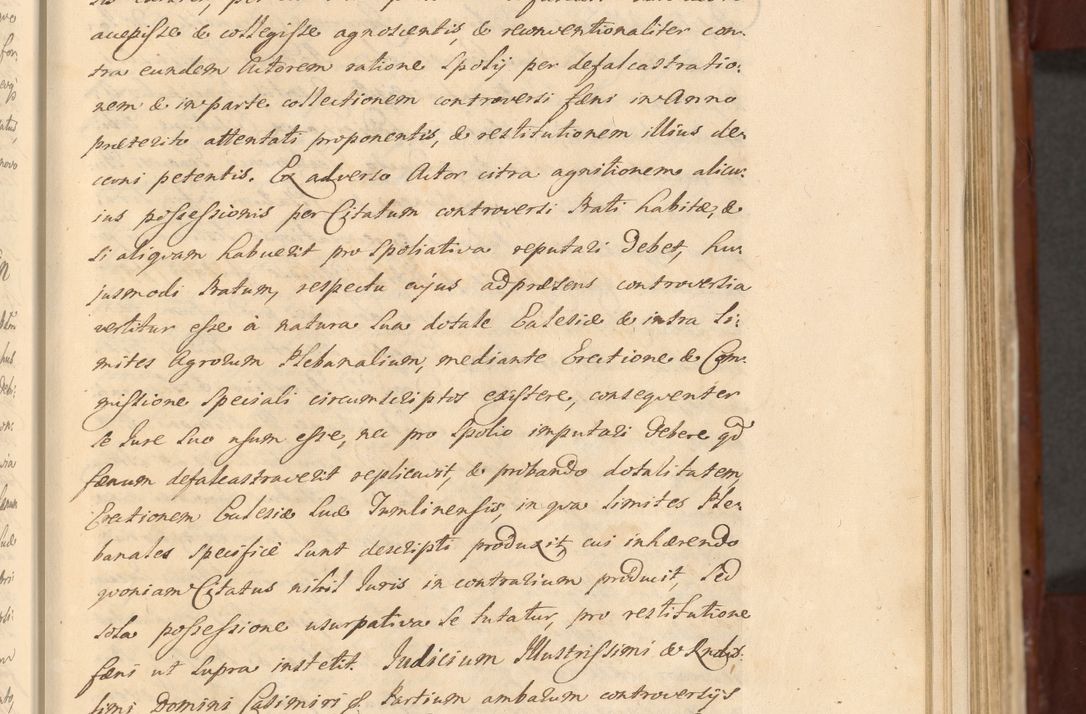 accepisse & collegisse agnoscentis, & reconventionaliter con-
tra eundem Actorem ratione Spolij per defalcastratio-
nem & in parte collectionem controversi fæni in Anno
præterito attentati proponentis, & restitutionem illius de-
cerni petentis. Ex adverso Actor citra agnitionem alicu-
ius possessionis per Citatum controversi Prati habitæ, &
si aliqvam habuerit pro Spoliativa reputari debet, hu-
jusmodi Pratum, respectu cujus ad præsens controversia
vertitur esse à natura sua dotale Ecclesiæ & intra li-
mites Agrorum Plebanalium, mediante Erectione & Com-
missione Speciali circumscriptos existere, conseqventer
se Jure suo usum esse, nec pro Spolio imputari debere qd
fænum defalcastraverit replicavit, & probando dotalitatem,
Erectionem Ecclesiæ suæ Tumlinensis, in qva limites Ple-
banales specificè sunt descripti produxit, cui inhærendo
qvoniam Citatus nihil Juris in contrarium producit, sed
sola possessione usurpativa se tutatur, pro restitutione
fæni ut supra institit. Judicium Illustrissimi & Rndis-
simi Domini Casimiri &. Partium ambarum controversijs